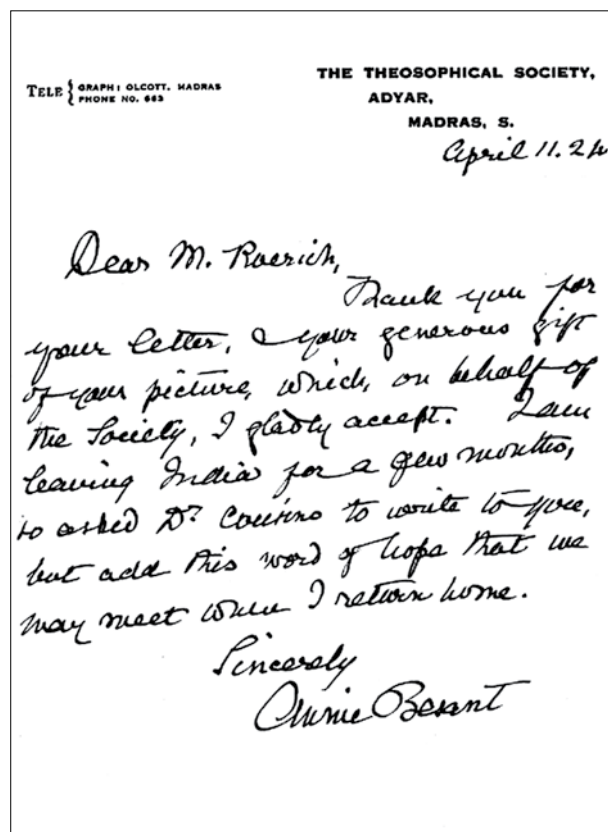 TELE { GRAPH: OLCOTT, MADRAS
PHONE NO. 663
THE THEOSOPHICAL SOCIETY,
ADYAR,
MADRAS, S.
April 11. 24
Dear M. Roerich,
Thank you for
your letter, & your generous gift
of your picture, which, on behalf of
the Society, I gladly accept. I am
leaving India for a few months,
so asked Dr. Cousins to write to you,
but add this word of hope that we
may meet when I return home.
Sincerely
Annie Besant